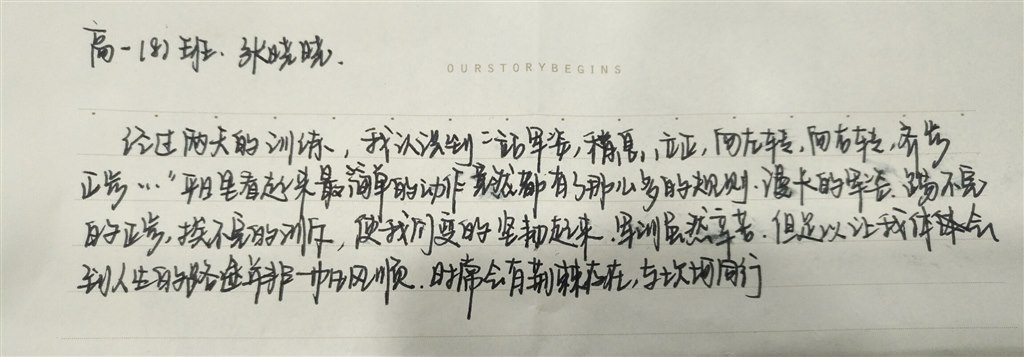 高一(8)班. 张晓晓.
OURSTORYBEGINS
经过两天的训练,我认识到"站军姿,稍息,立正,向左转,向右转,齐步
正步…"平日里看起来最简单的动作竟然都有了那么多的规则.漫长的军姿.踢不完
的正步.挨不完的训斥,使我们变的坚韧起来.军训虽然辛苦.但足以让我体会
到人生的路途并非一帆风顺.时常会有荆棘存在,与坎坷同行